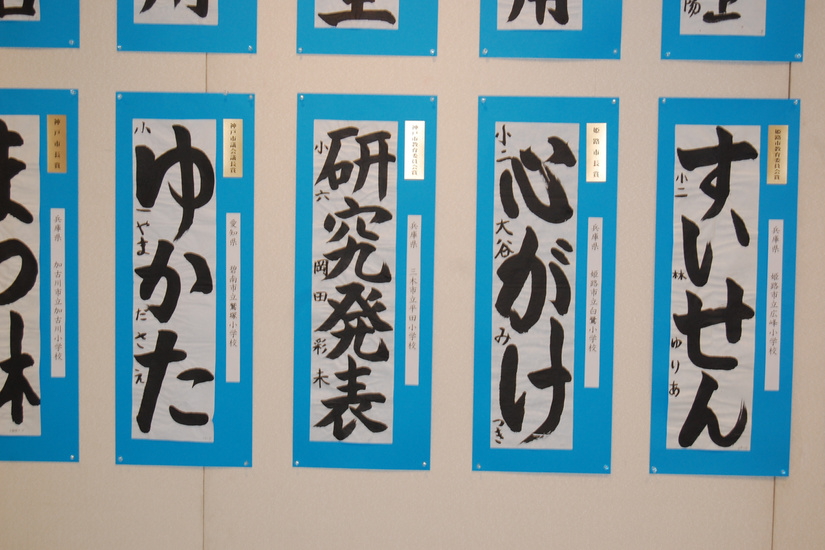 姫路市教育委員会賞
兵庫県 姫路市立広峰小学校
すいせん
小二 林 ゆりあ
姫路市長賞
兵庫県 姫路市立白鷺小学校
心がけ
小二 大谷 みつき
神戸市教育委員会賞
兵庫県 三木市立平田小学校
研究発表
小六 岡田 彩未
神戸市議会議長賞
愛知県 碧南市立鷲塚小学校
ゆかた
小一 やまださえ
神戸市長賞
兵庫県 加古川市立加古川小学校